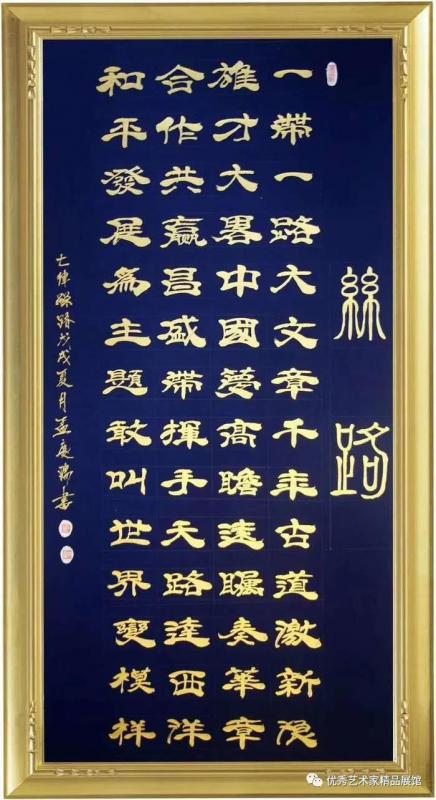 絲路
一帶一路大文章千年古道激新浪
雄才大畧中國夢高瞻遠矚奏華章
合作共贏昌盛帶揮手天路達西洋
和平發展為主題敢叫世界變模樣
七律絲路戊戌夏月孟瑞書
优秀艺术家精品展馆